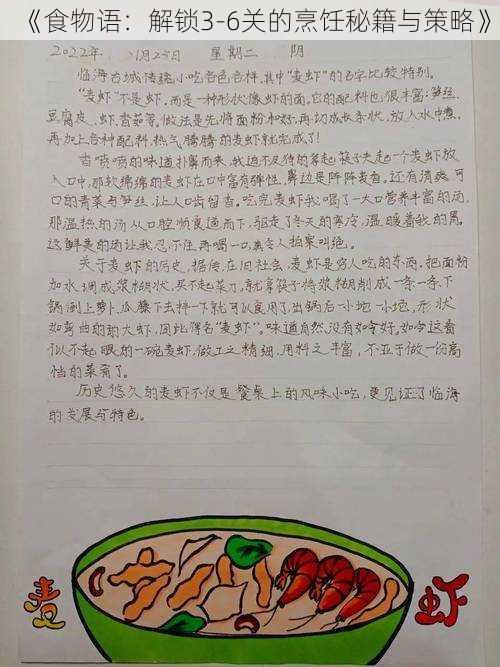 《食物语：解锁3-6关的烹饪秘籍与策略》
2022年 1月25日 星期二 阴
临海古城传统小吃各色各样，其中“麦虾”的名字比较特别。
“麦虾”不是虾，而是一种形状像虾的面，它的配料也很丰富：笋丝、
豆腐皮、虾、香菇等，做法是先将面粉和好，再切成长条状，放入水中煮，
再加上各种配料，热气腾腾的麦虾就完成了！
香喷喷的味道扑鼻而来，我迫不及待的拿起筷子夹起一个麦虾放
入口中，那软绵绵的麦虾在口中富有弹性，鼻边是阵阵麦香。还有清爽可
口的青菜与笋丝，让人口齿留香。吃完麦虾我喝了一大口营养丰富的汤，
那温热的汤从口腔顺食道而下，驱走了冬天的寒冷，温暖着我的胃。
这鲜美的汤让我忍不住再喝一口，真令人拍案叫绝。
关于麦虾的历史，据传，在旧社会，麦虾是穷人吃的东西，把面粉
加水调成浆糊状，买不起菜刀，就拿筷子将浆糊削成一条一条下
锅，倒上萝卜、瓜藤下去拌一下就可以食用了，出锅后一小坨一小坨，形状
如弯曲的大虾，因此得名“麦虾”。味道自然没有如今好，如今这看
似不起眼的一碗麦虾，做工之精细，用料之丰富，不亚于做一份高
档的菜肴了。
历史悠久的麦虾不仅是餐桌上的风味小吃，更见证了临海
的发展与特色。
麦
虾